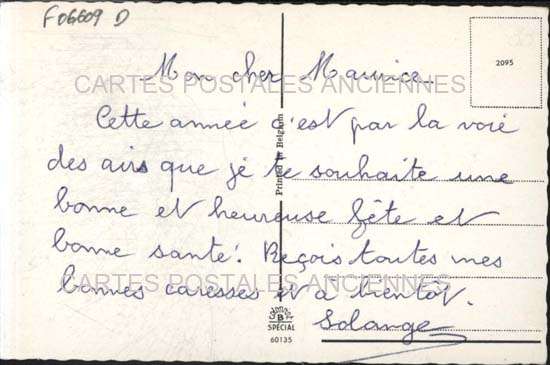 F06609 D
2095
Mon cher Maurice..
CARTES POSTALES ANCIENNES
Cette année c'est par la voie
des airs que je te souhaite une
bonne et heureuse fête et
bonne santé! Reçois toutes mes
CARTES POSTALES ANCIENNES
bonnes caresses et a bientôt.
Solange
Printed in Belgium
B
SPÉCIAL
60135